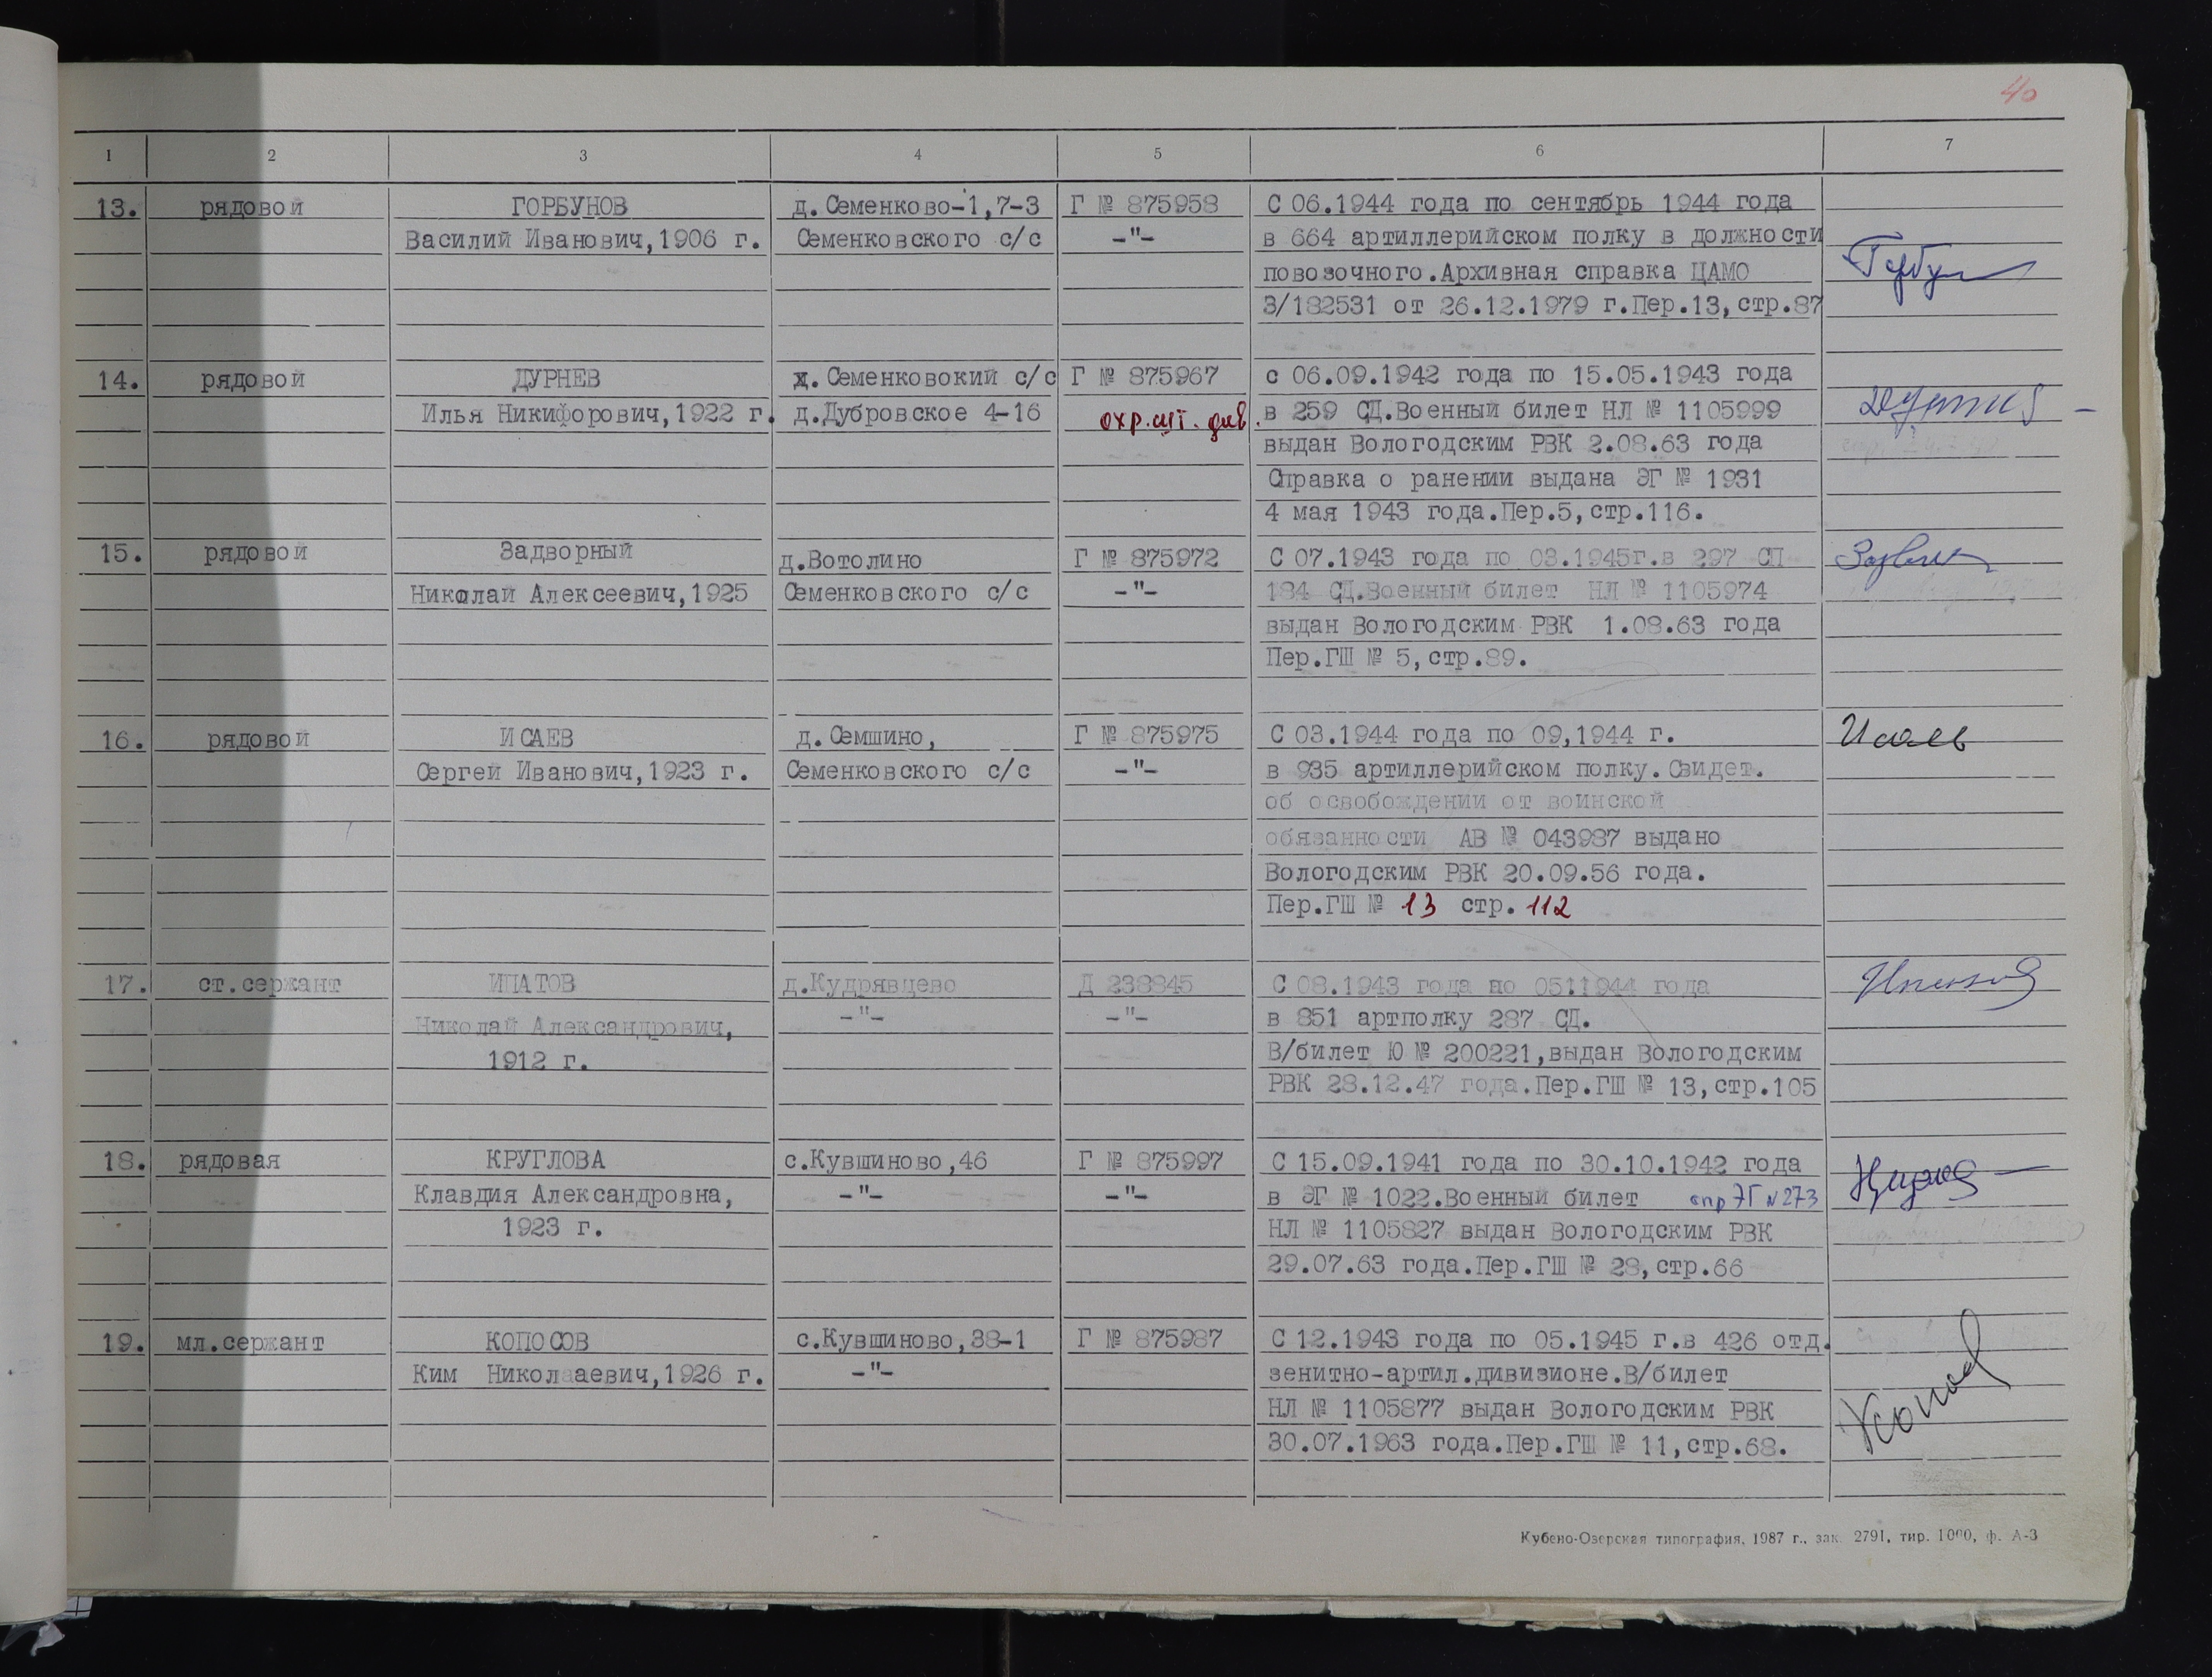 40
1 2 3 4 5 6 7
13. рядовой ГОРБУНОВ д.Семенково-1,7-3 Г № 875958 С 06.1944 года по сентябрь 1944 года
Василий Иванович,1906 г. Семенковского с/с -"- в 664 артиллерийском полку в должности
повозочного.Архивная справка ЦАМО
3/182531 от 26.12.1979 г.Пер.13,стр.87
14. рядовой ДУРНЕВ х.Семенковокий с/с Г № 875967 с 06.09.1942 года по 15.05.1943 года
Илья Никифорович,1922 г. д.Дубровское 4-16 охр.шт.див. в 259 СД.Военный билет НЛ № 1105999
выдан Вологодским РВК 2.08.63 года
Справка о ранении выдана ЭГ № 1931
4 мая 1943 года.Пер.5,стр.116.
15. рядовой Задворный д.Вотолино Г № 875972 С 07.1943 года по 03.1945г.в 297 СП
Николай Алексеевич,1925 Семенковского с/с -"- 184 СД.Военный билет НЛ № 1105974
выдан Вологодским РВК 1.08.63 года
Пер.ГШ № 5,стр.89.
16. рядовой ИСАЕВ д.Семшино, Г № 875975 С 03.1944 года по 09,1944 г. Исаев
Сергей Иванович,1923 г. Семенковского с/с -"- в 935 артиллерийском полку.Свидет.
об освобождении от воинской
обязанности АВ № 043987 выдано
Вологодским РВК 20.09.56 года.
Пер.ГШ № 13 стр. 112
17. ст.сержант ИПАТОВ д.Кудрявцево Д 238845 С 08.1943 года по 0511944 года
Николай Александрович, -"- -"- в 851 артполку 287 СД.
1912 г. В/билет Ю № 200221,выдан Вологодским
РВК 28.12.47 года.Пер.ГШ № 13,стр.105
18. рядовая КРУГЛОВА с.Кувшиново,46 Г № 875997 С 15.09.1941 года по 30.10.1942 года
Клавдия Александровна, -"- -"- в ЭГ № 1022.Военный билет спр ЭГ №273
1923 г. НЛ № 1105827 выдан Вологодским РВК
29.07.63 года.Пер.ГШ № 28,стр.66
19. мл.сержант КОПОСОВ с.Кувшиново,38-1 Г № 875987 С 12.1943 года по 05.1945 г.в 426 отд.
Ким Николааевич,1926 г. -"- зенитно-артил.дивизионе.В/билет
НЛ № 1105877 выдан Вологодским РВК
30.07.1963 года.Пер.ГШ № 11,стр.68.
Кубено-Озерская типография, 1987 г., зак. 2791, тир. 1000, ф. А-3